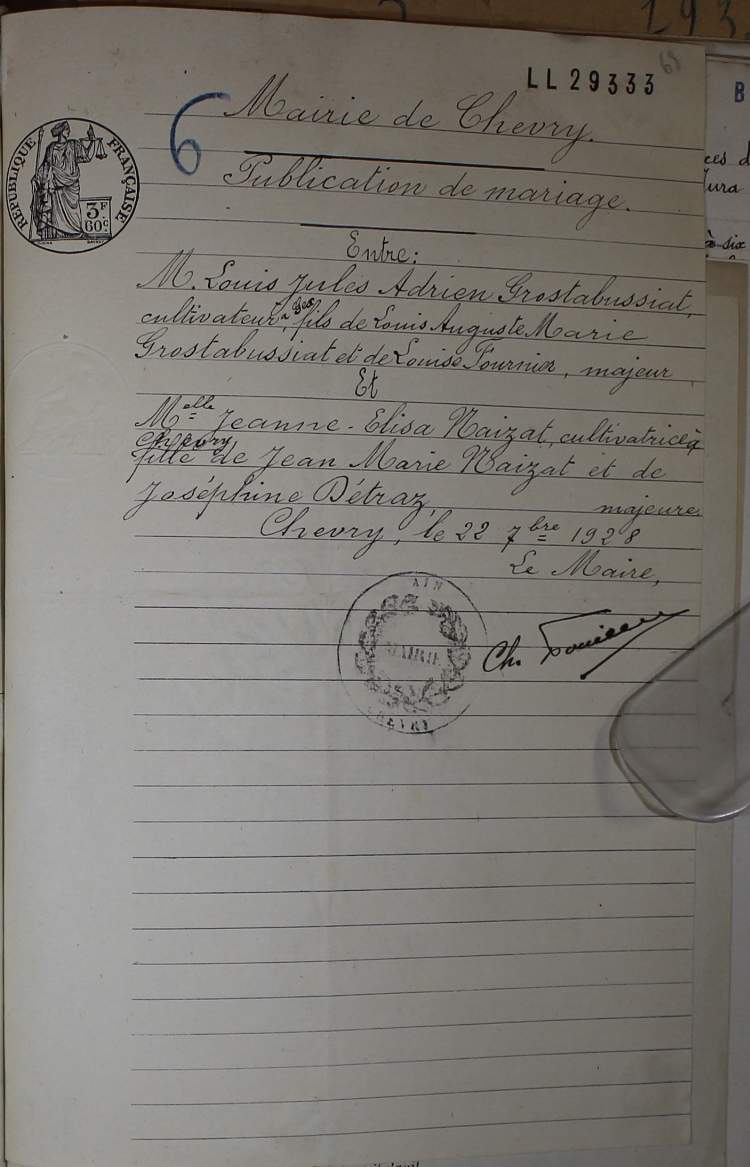 193
63
LL 29333
B
6
Mairie de Chevry.
ces d
RÉPUBLIQUE FRANÇAISE
3F
60c
Publication de mariage.
Jura
à six
Entre:
M. Louis Jules Adrien Grostabussiat,
cultivateur, à Gex, fils de Louis Auguste Marie
Grostabussiat et de Louise Fournier, majeur
Et
Melle Jeanne-Elisa Naizat, cultivatrice à
Chevry,
fille de Jean Marie Naizat et de
Joséphine Détraz, majeure
Chevry, le 22 7bre 1928
Le Maire,
AIN
MAIRIE
CHEVRY
Ch.